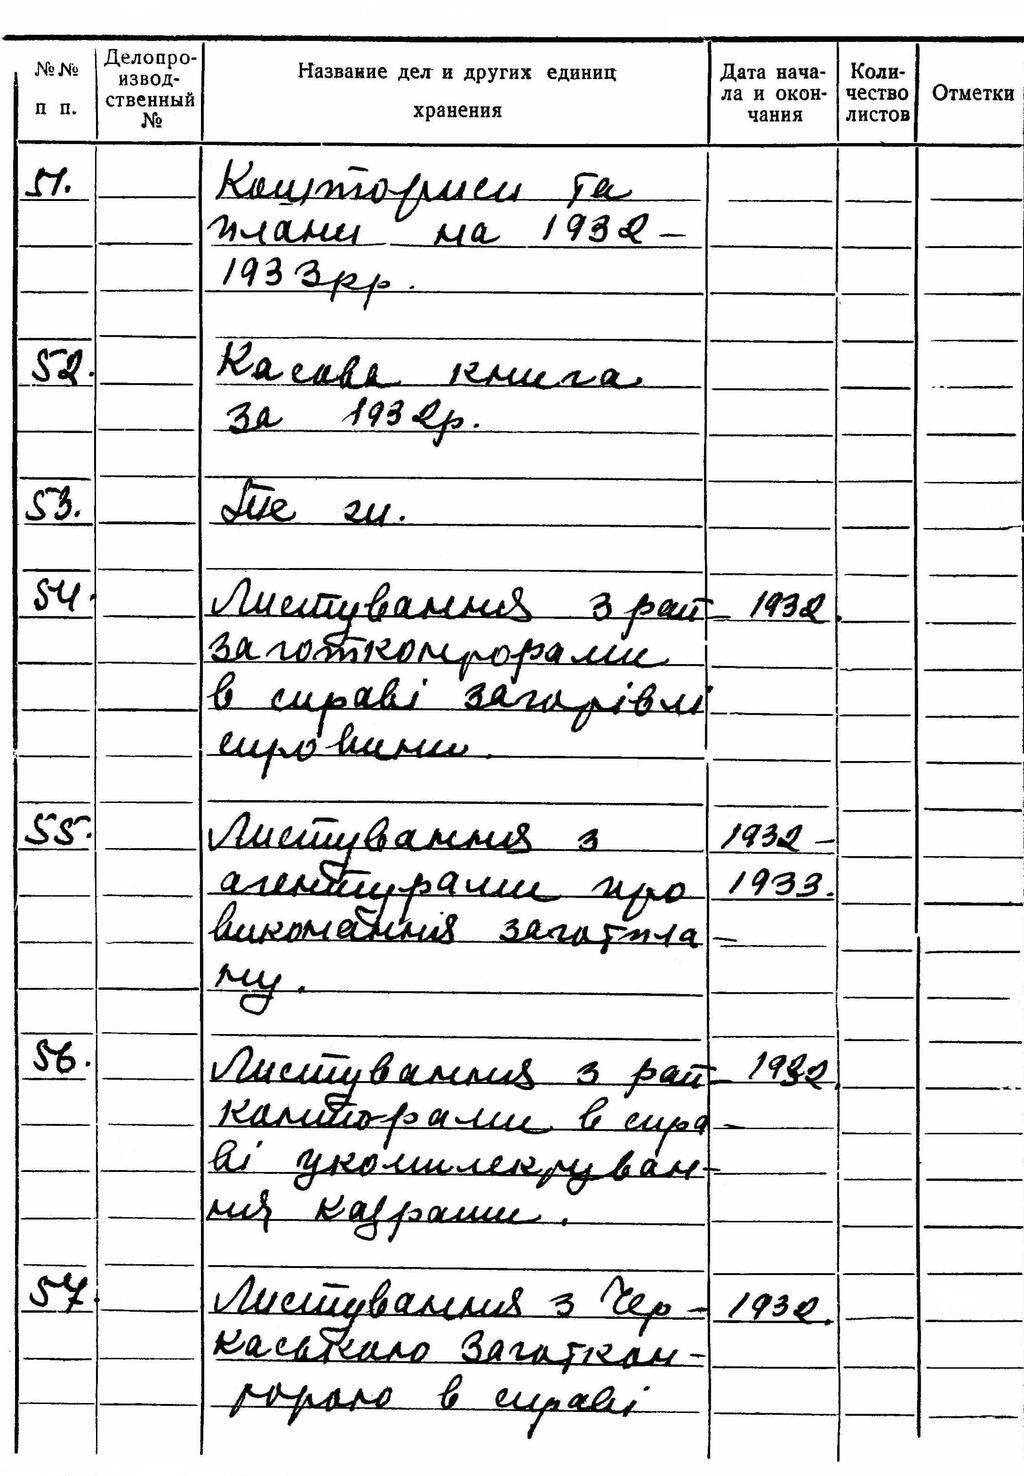 №№ п п.
Делопро-
извод-
ственный
№
Название дел и других единиц
хранения
Дата нача-
ла и окон-
чания
Коли-
чество
листов
Отметки
51. Кошториси та
плани на 1932-
1933рр.
52. Касова книга
за 1932р.
53.
54. Листування з рай- 1932.
заготконторами
в справі заготівлі
сировини.
55. Листування з 1932-
агентурами про 1933.
виконання заготпла-
ну.
56. Листування з рай- 1932.
конторами в спра-
ві укомплектуван-
ня кадрами.
57. Листування з Чер- 1932.
каською Заготкон-
торою в справі